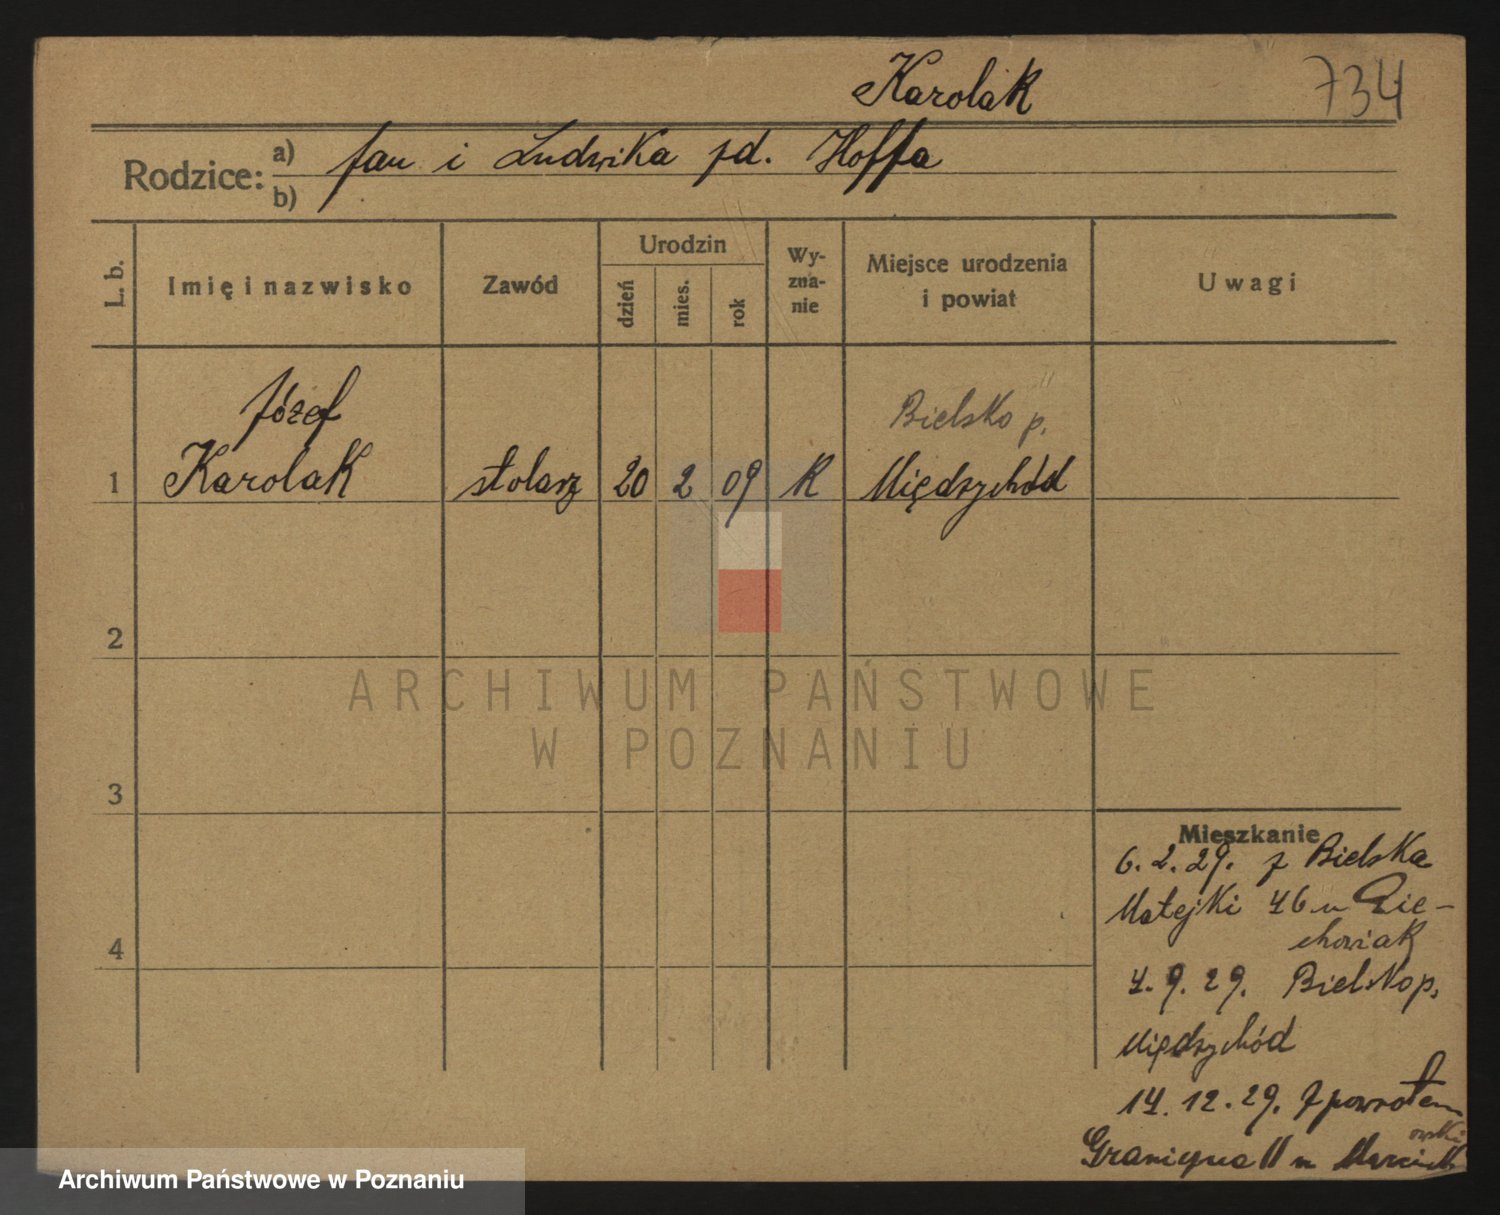 Karolak 734
Rodzice: a) Jan i Ludwika zd. Hoffa
b)
L. b. Imię i nazwisko Zawód Urodzin dzień mies. rok Wyznanie Miejsce urodzenia i powiat Uwagi
Józef Bielsko p.
1 Karolak stolarz 20 2 09 R Międzychód
2
3
4
Mieszkanie
6.2.29. z Bielska
Matejki 46 u Cie-
chowiak
4.9.29. Bielsko p.
Międzychód
14.12.29. z powrotem
Graniczna 11 u
ARCHIWUM PAŃSTWOWE
W POZNANIU
Archiwum Państwowe w Poznaniu